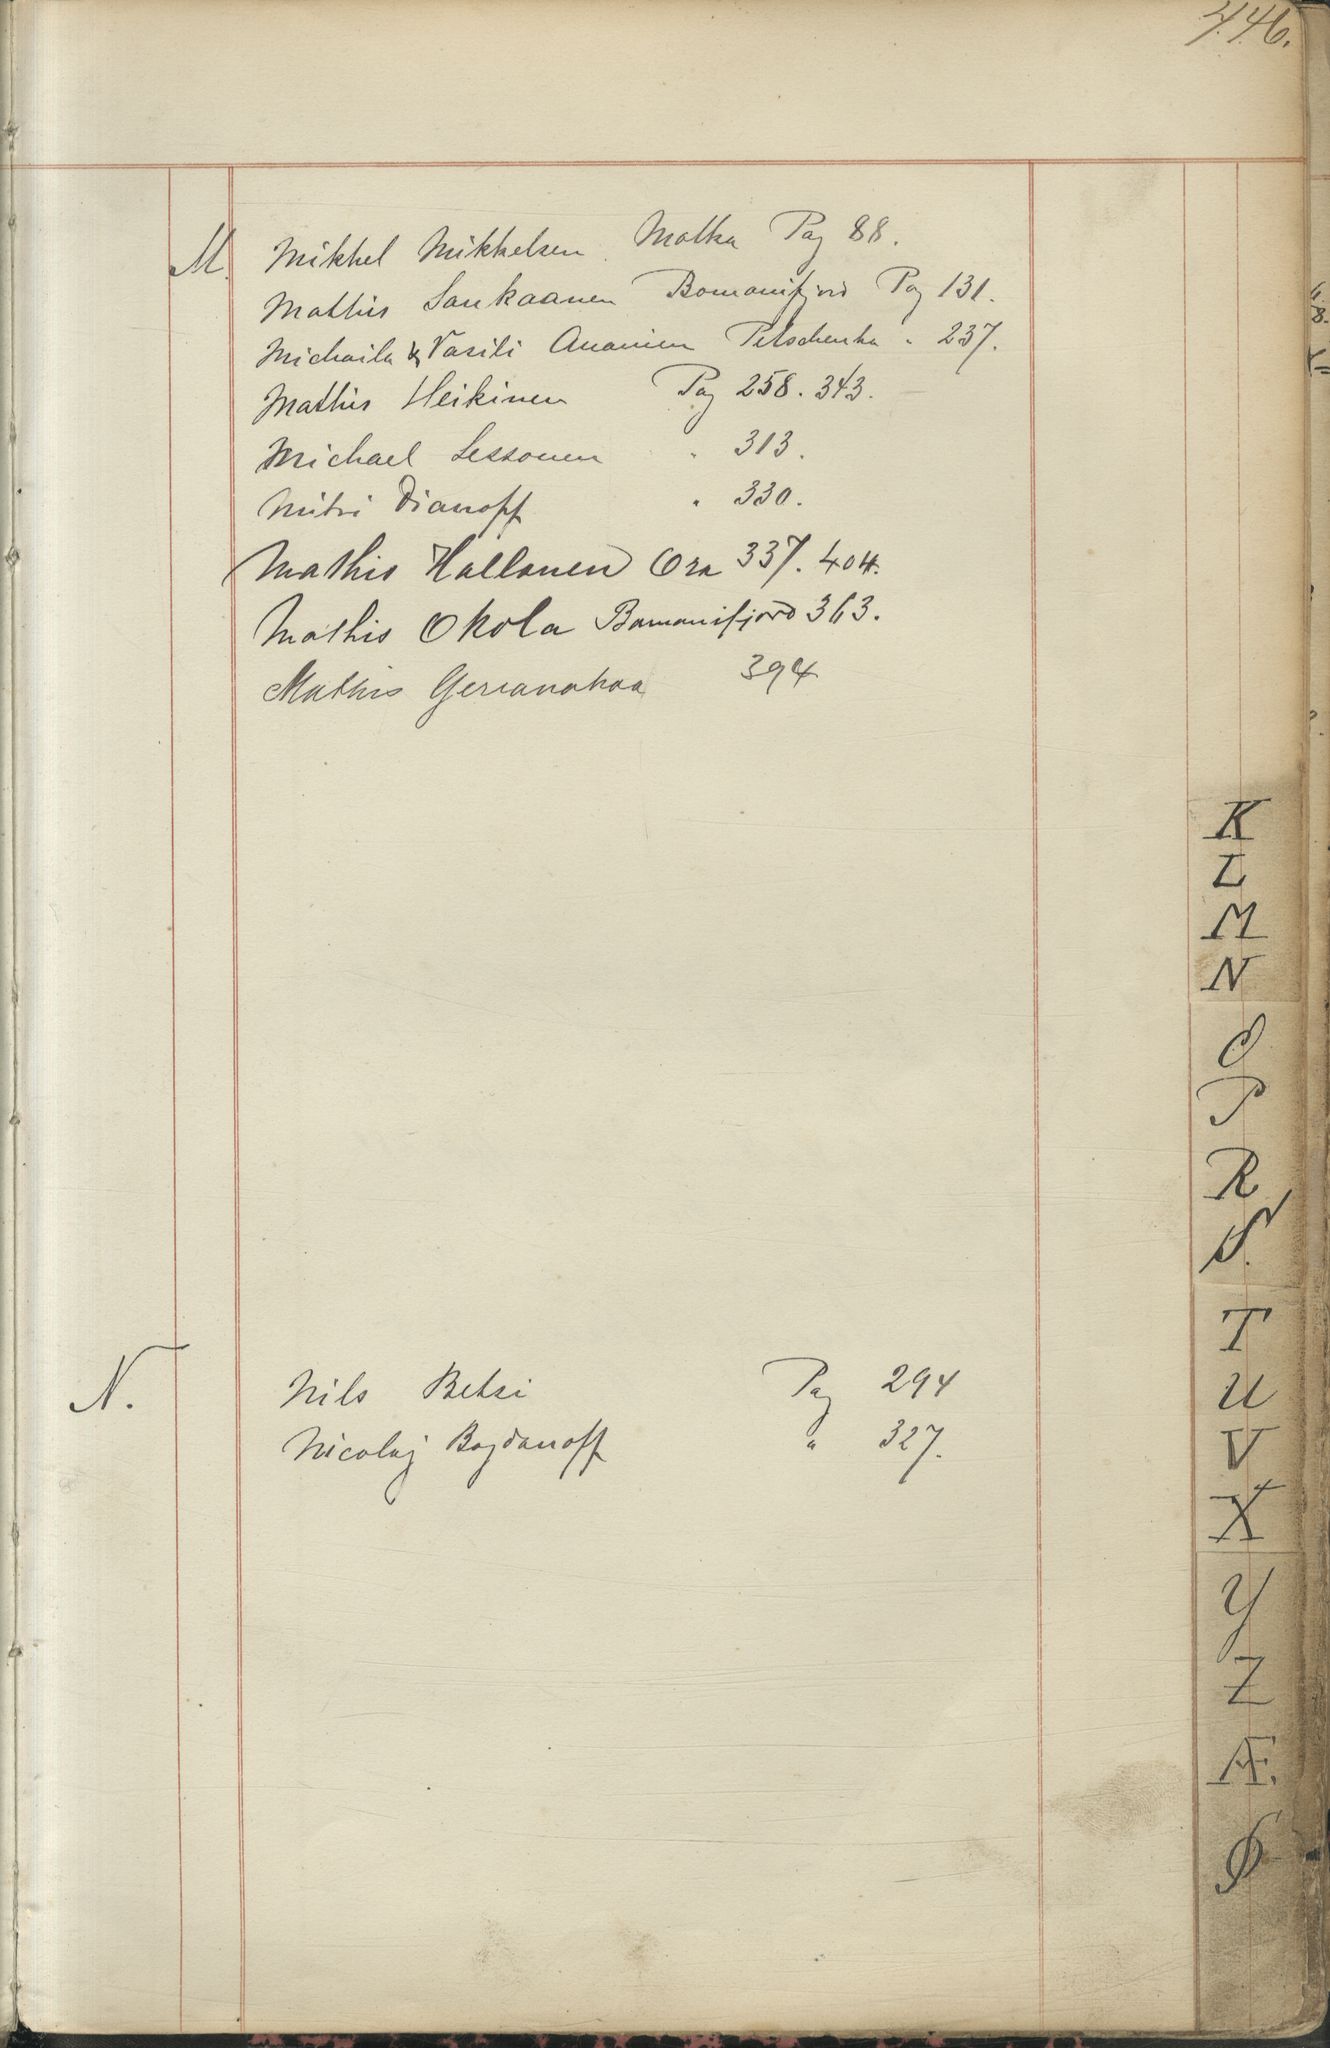 446.
M. Mikkel Mikkelsen. Motka Pag 88.
Mathis Laukaanen Bomanifjord Pag 131.
Michaila & Vasili Ananien Petschenka " 237.
Mathis Heikinen Pag 258. 343.
Michael Lessonen " 313.
Mitri Dianoff " 330.
Mathis Hallonen Ora 337. 404.
Mathis Okola Bomanifjord 363.
Mathis 394
N. Nils Betsi Pag 294
Nicolaj Bogdanoff " 327.
K
L
M
N
O
P
R
S.
T
U
V
X
Y
Z
Æ.
Ø